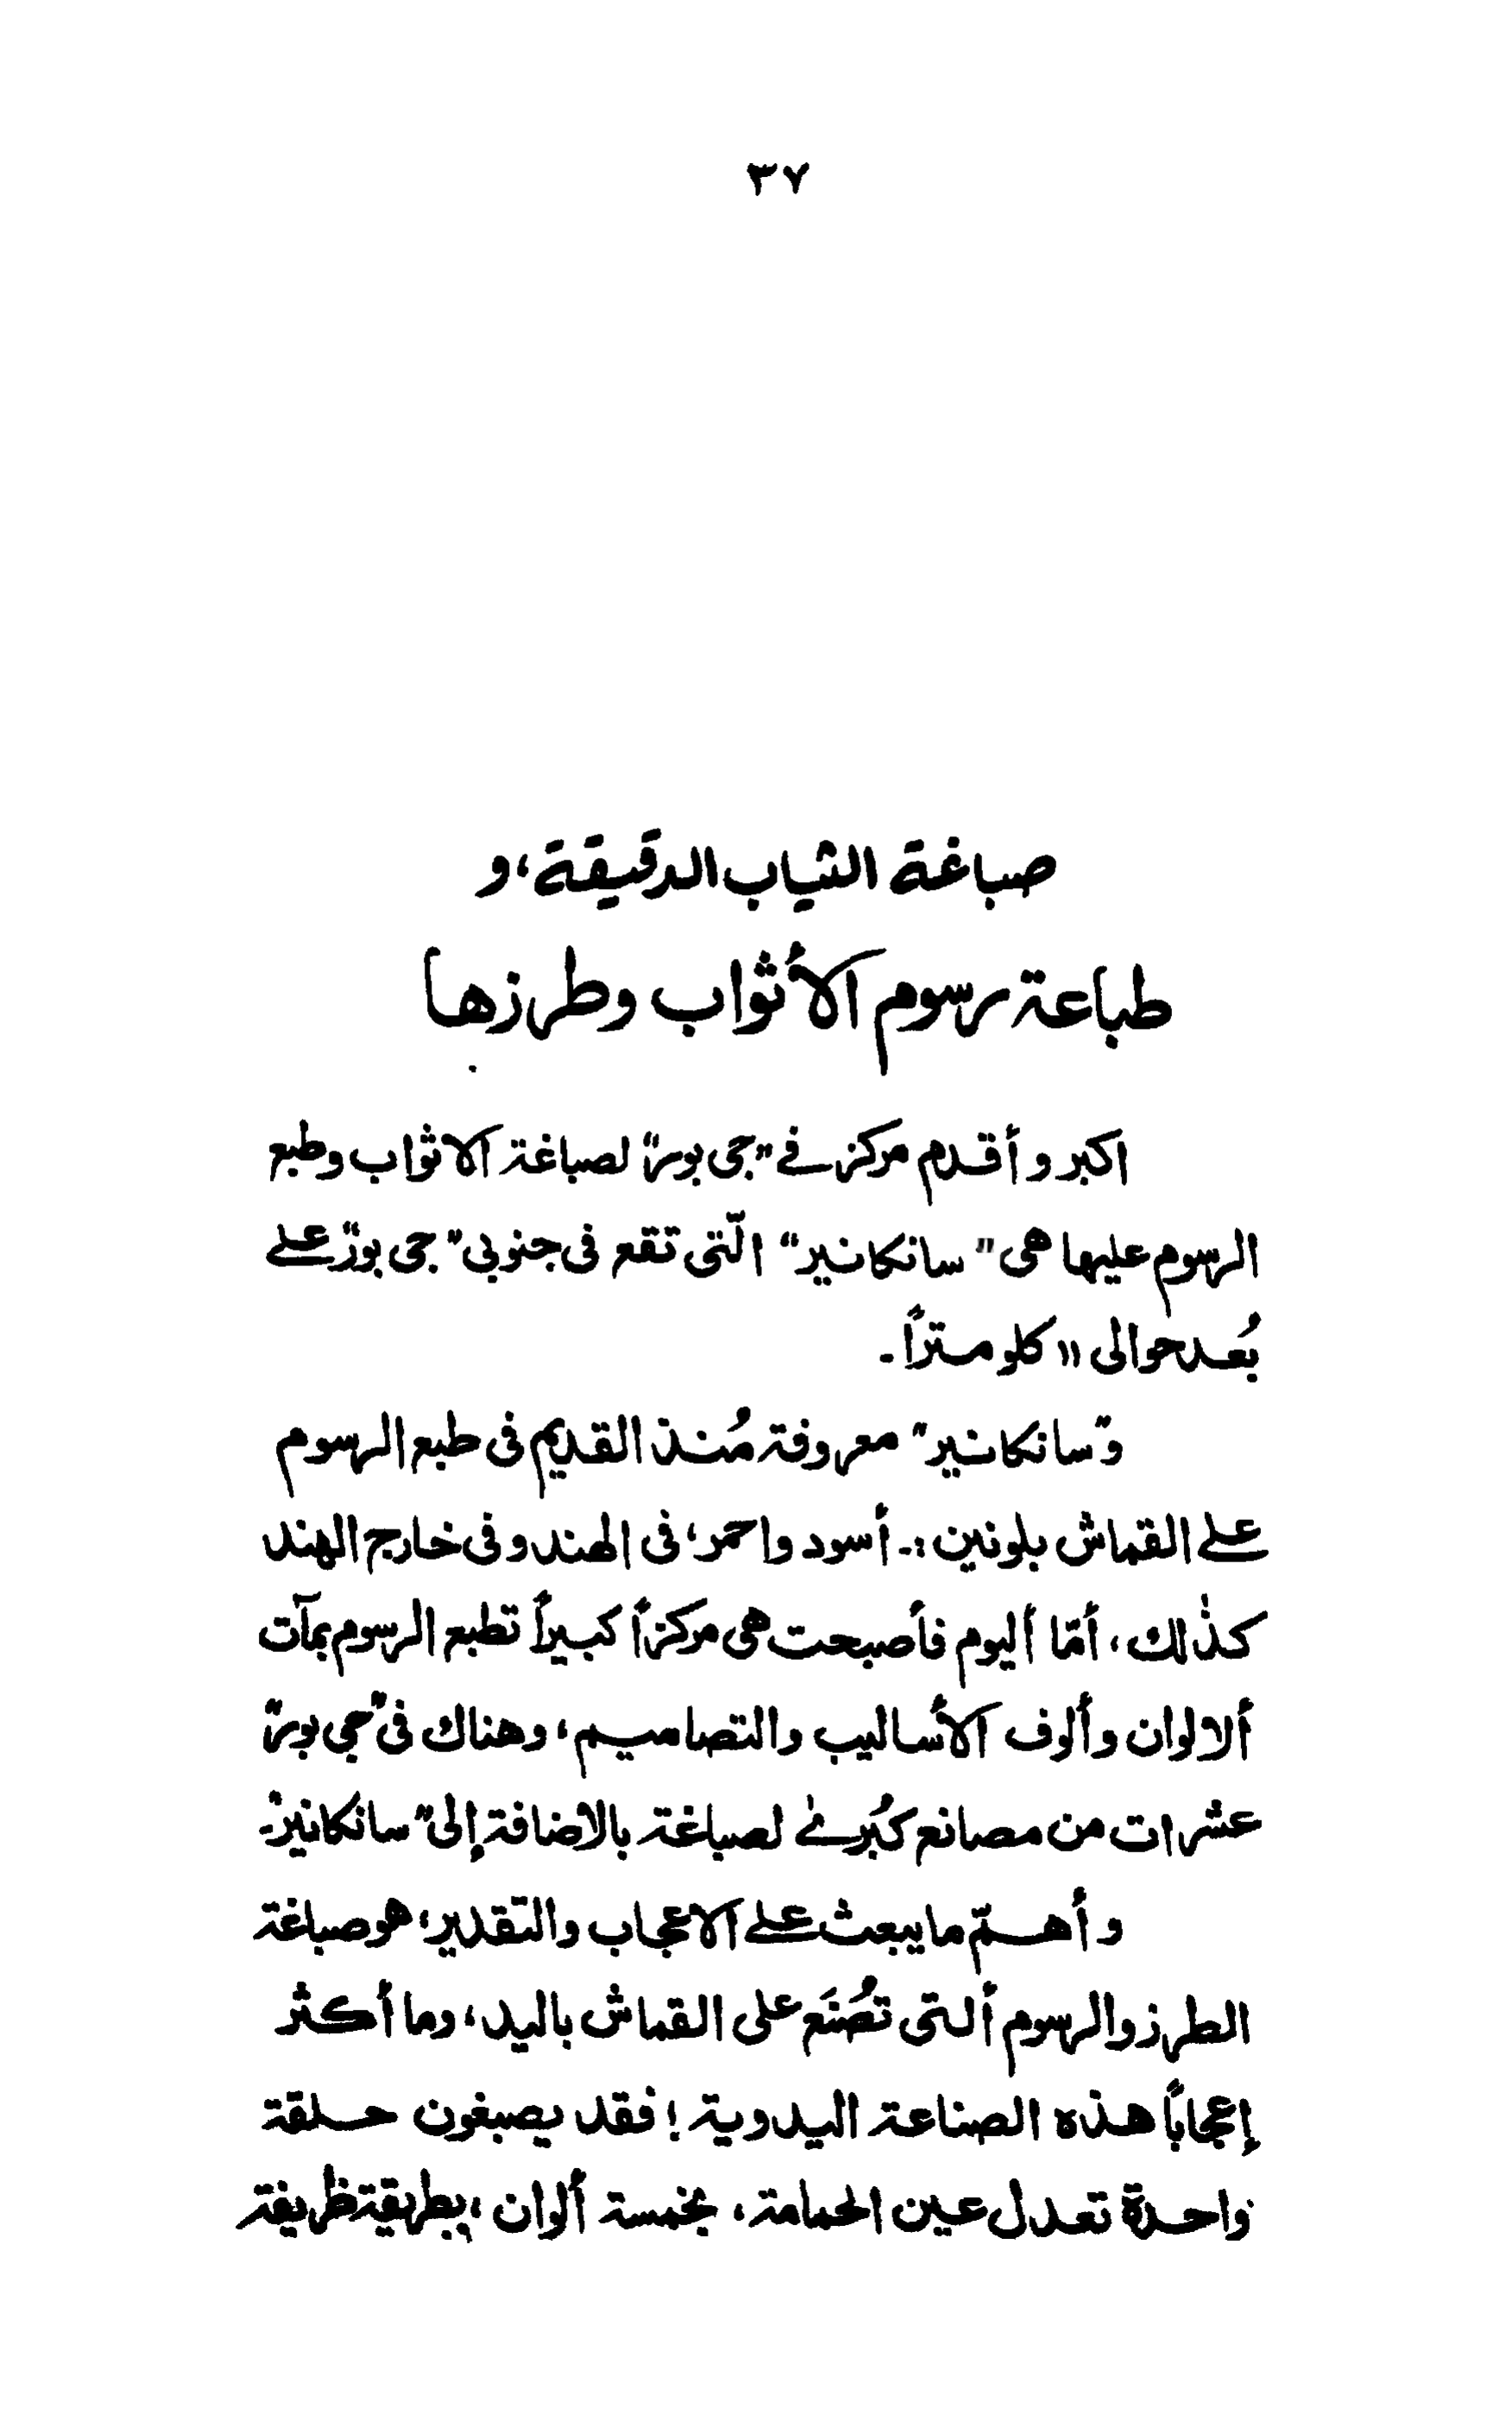 ٣٧
صباغة الثياب الدقيقة، و
طباعة رسوم الأثواب وطرزها
اكبر و أقدم مركز في "جی بور" لصباغة الاثواب وطبع
الرسوم عليها هی "سانكانير" الّتی تقع فی جنوبی "جی بور" علی
بُعد حوالی ١١ كلومتراً۔
و"سانكانير" معروفة مُنذ القديم فی طبع الرسوم
علی القماش بلونين :۔ أسود واحمر، فی الهند و فی خارج الهند
كذٰلك، أمّا أليوم فأصبحت هی مركزاً كبيراً تطبع الرسوم بمآت
ألالوان وألوف الأساليب والتصاميم، وهناك فی "جی بور"
عشرات من مصانع كُبرىٰ لصباغة بالاضافة إلی "سانكانير"۔
و أهمّ ما يبعث علی الاعجاب والتقدير، هو صباغة
الطرز والرسوم ألتی تصُنَع علی القماش باليد، وما أكثر
إعجاباً هذه الصناعة اليدوية ! فقد يصبغون حلقة
واحدة تعدل عين الحمامة، بخمسة ألوان، بطريقة ظريفة